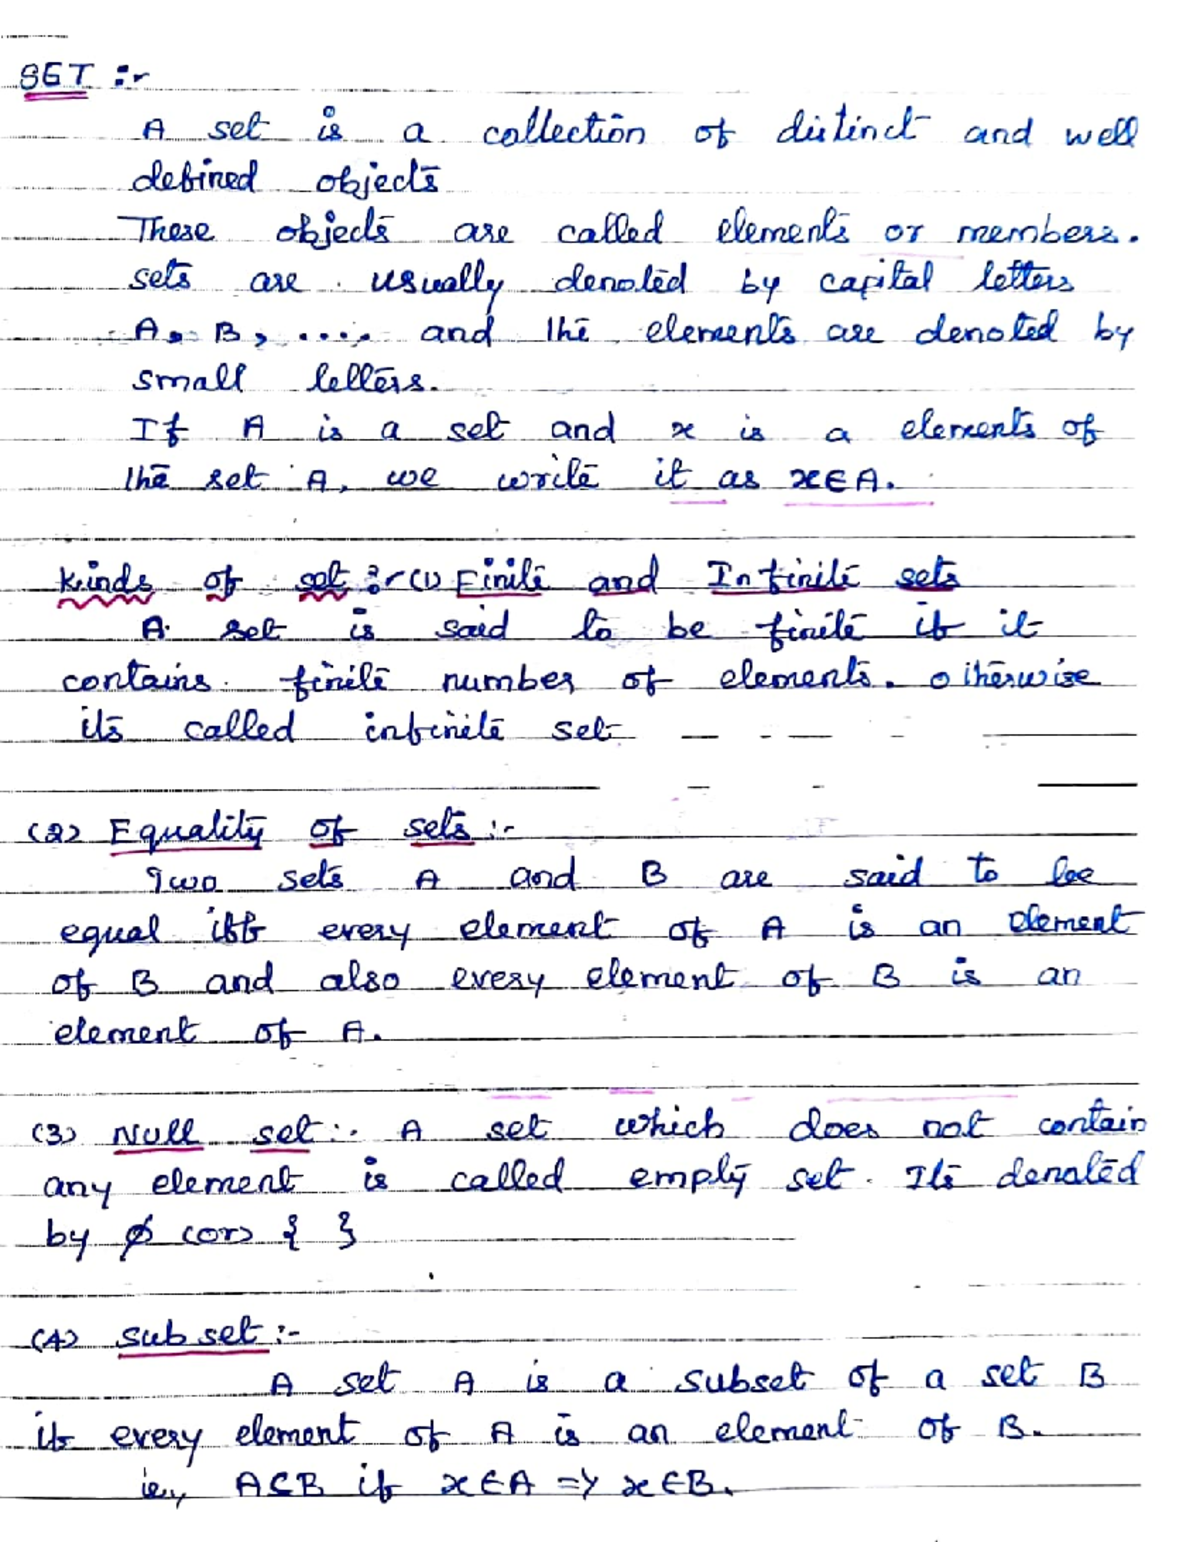 SET :-
A set is a collection of distinct and well
defined objects
These objects are called elements or members.
sets are usually denoted by capital letters
A, B, .... and the elements are denoted by
small letters.
If A is a set and x is a elements of
the set A, we write it as x∈A.
Kinds of set :- (1) Finite and Infinite sets
A set is said to be finite if it
contains finite number of elements. otherwise
its called infinite set
(2) Equality of sets :-
Two sets A and B are said to be
equal iff every element of A is an element
of B and also every element of B is an
element of A.
(3) Null set :- A set which does not contain
any element is called empty set. Its denoted
by ∅ (or) { }
(4) subset :-
A set A is a subset of a set B
if every element of A is an element of B.
ie, A⊆B if x∈A => x∈B.